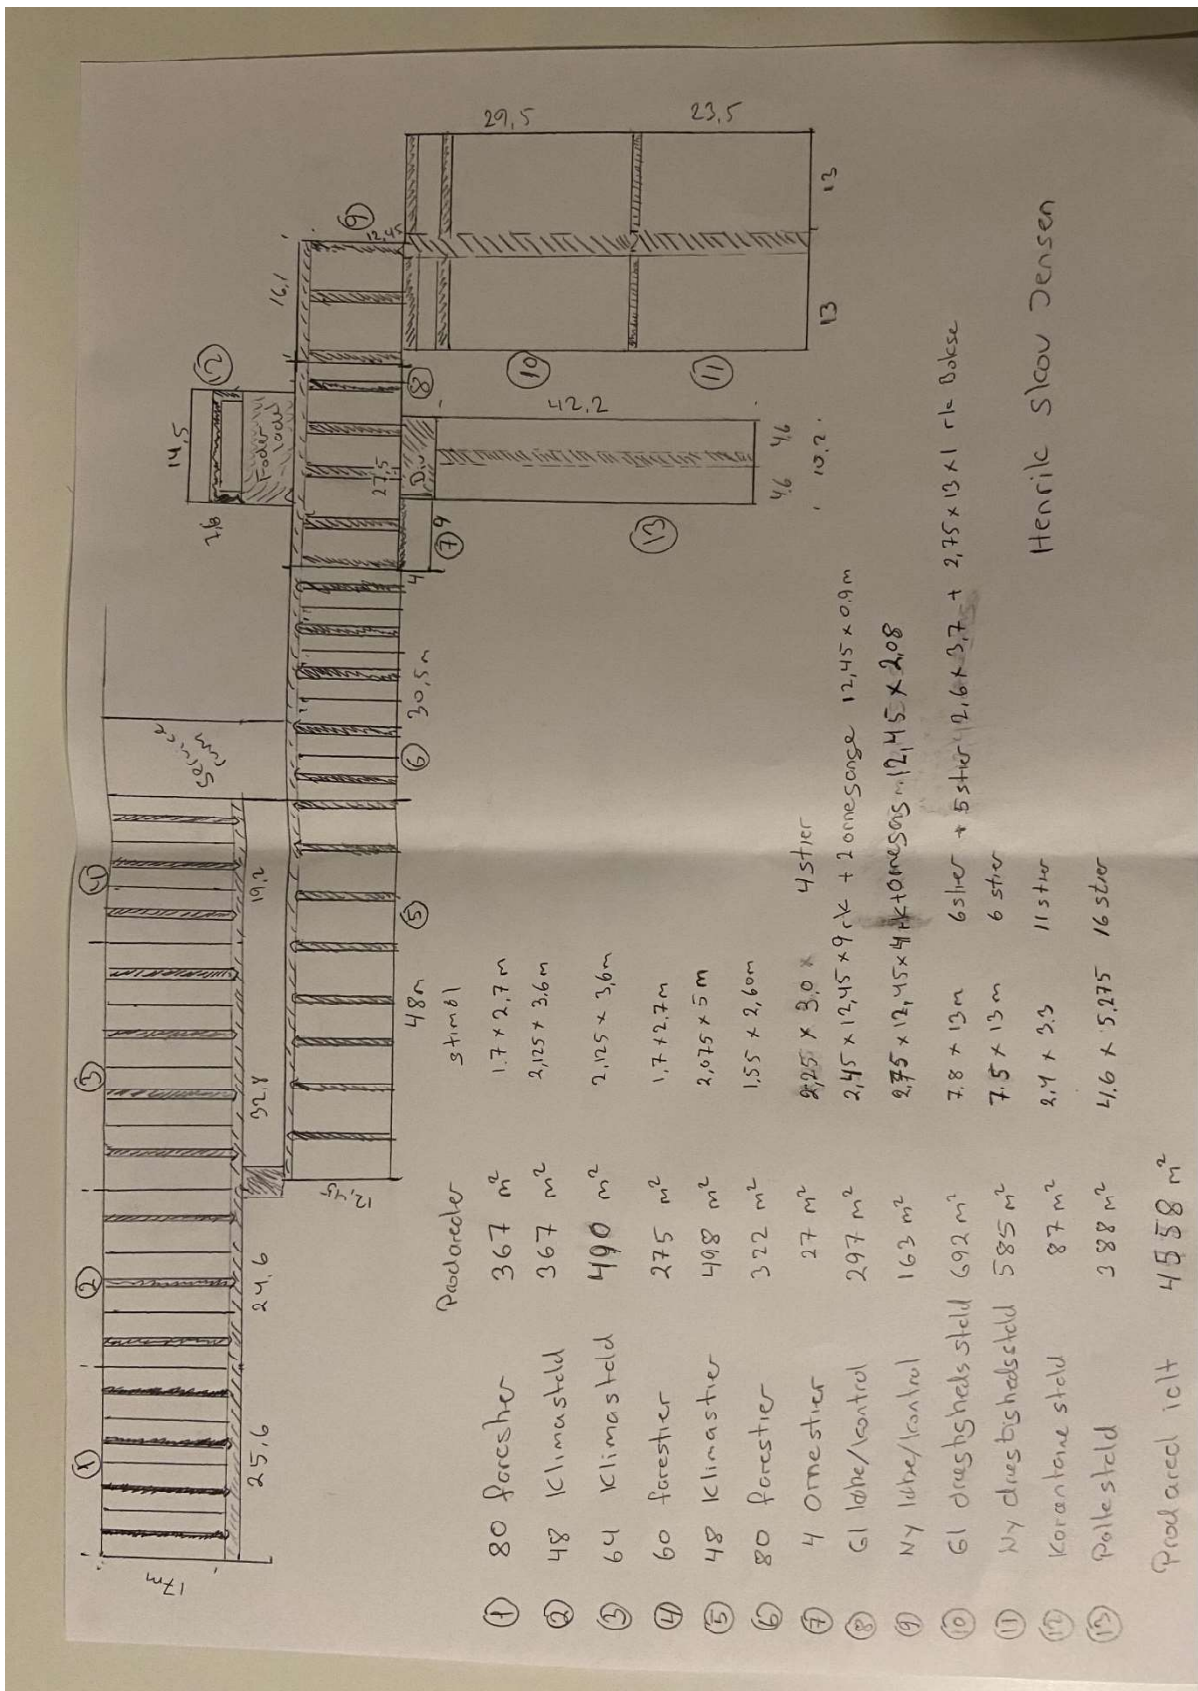 ① ② ③ ④
17m
25,6 24,6 32.8 19,2
Service rum
12,45
48m ⑤ ⑥ 30,5m 4
14,5 ⑫
7,6
Foder lade
27,5
16,1
12,45 ⑨
⑧
⑦ 9
Div
42.2
⑬
4,6 4,6
10.2
29,5 23,5
⑩ ⑪
13 13
Prodarealer stimål
① 80 farestier 367 m² 1.7 x 2,7m
② 48 Klimastald 367 m² 2,125 x 3,6m
③ 64 Klimastald 490 m² 2,125 x 3,6m
④ 60 farestier 275 m² 1,7 x 2,7m
⑤ 48 Klimastier 498 m² 2,075 x 5 m
⑥ 80 farestier 322 m² 1,55 x 2,60m
⑦ 4 Ornestier 27 m² 2,25 x 3,0 x 4 stier
⑧ Gl løbe/kontrol 297 m² 2,45 x 12,45 x 9 rk + 2 ornegange 12,45 x 0,9m
⑨ Ny løbe/kontrol 163 m² 2,75 x 12,45 x 4 rk + 12,45 x 2,08
⑩ Gl drægtighedsstald 692 m² 7.8 x 13m 6 stier + 5 stier 2,6 x 3,7 + 2,75 x 13 x 1 rk Bokse
⑪ Ny drægtighedsstald 585 m² 7.5 x 13m 6 stier
⑫ Karantæne stald 87 m² 2,4 x 3.3 11 stier
⑬ Poltestald 388 m² 4,6 x 5,275 16 stier
Prodareal ialt 4558 m²
Henrik Skov Jensen